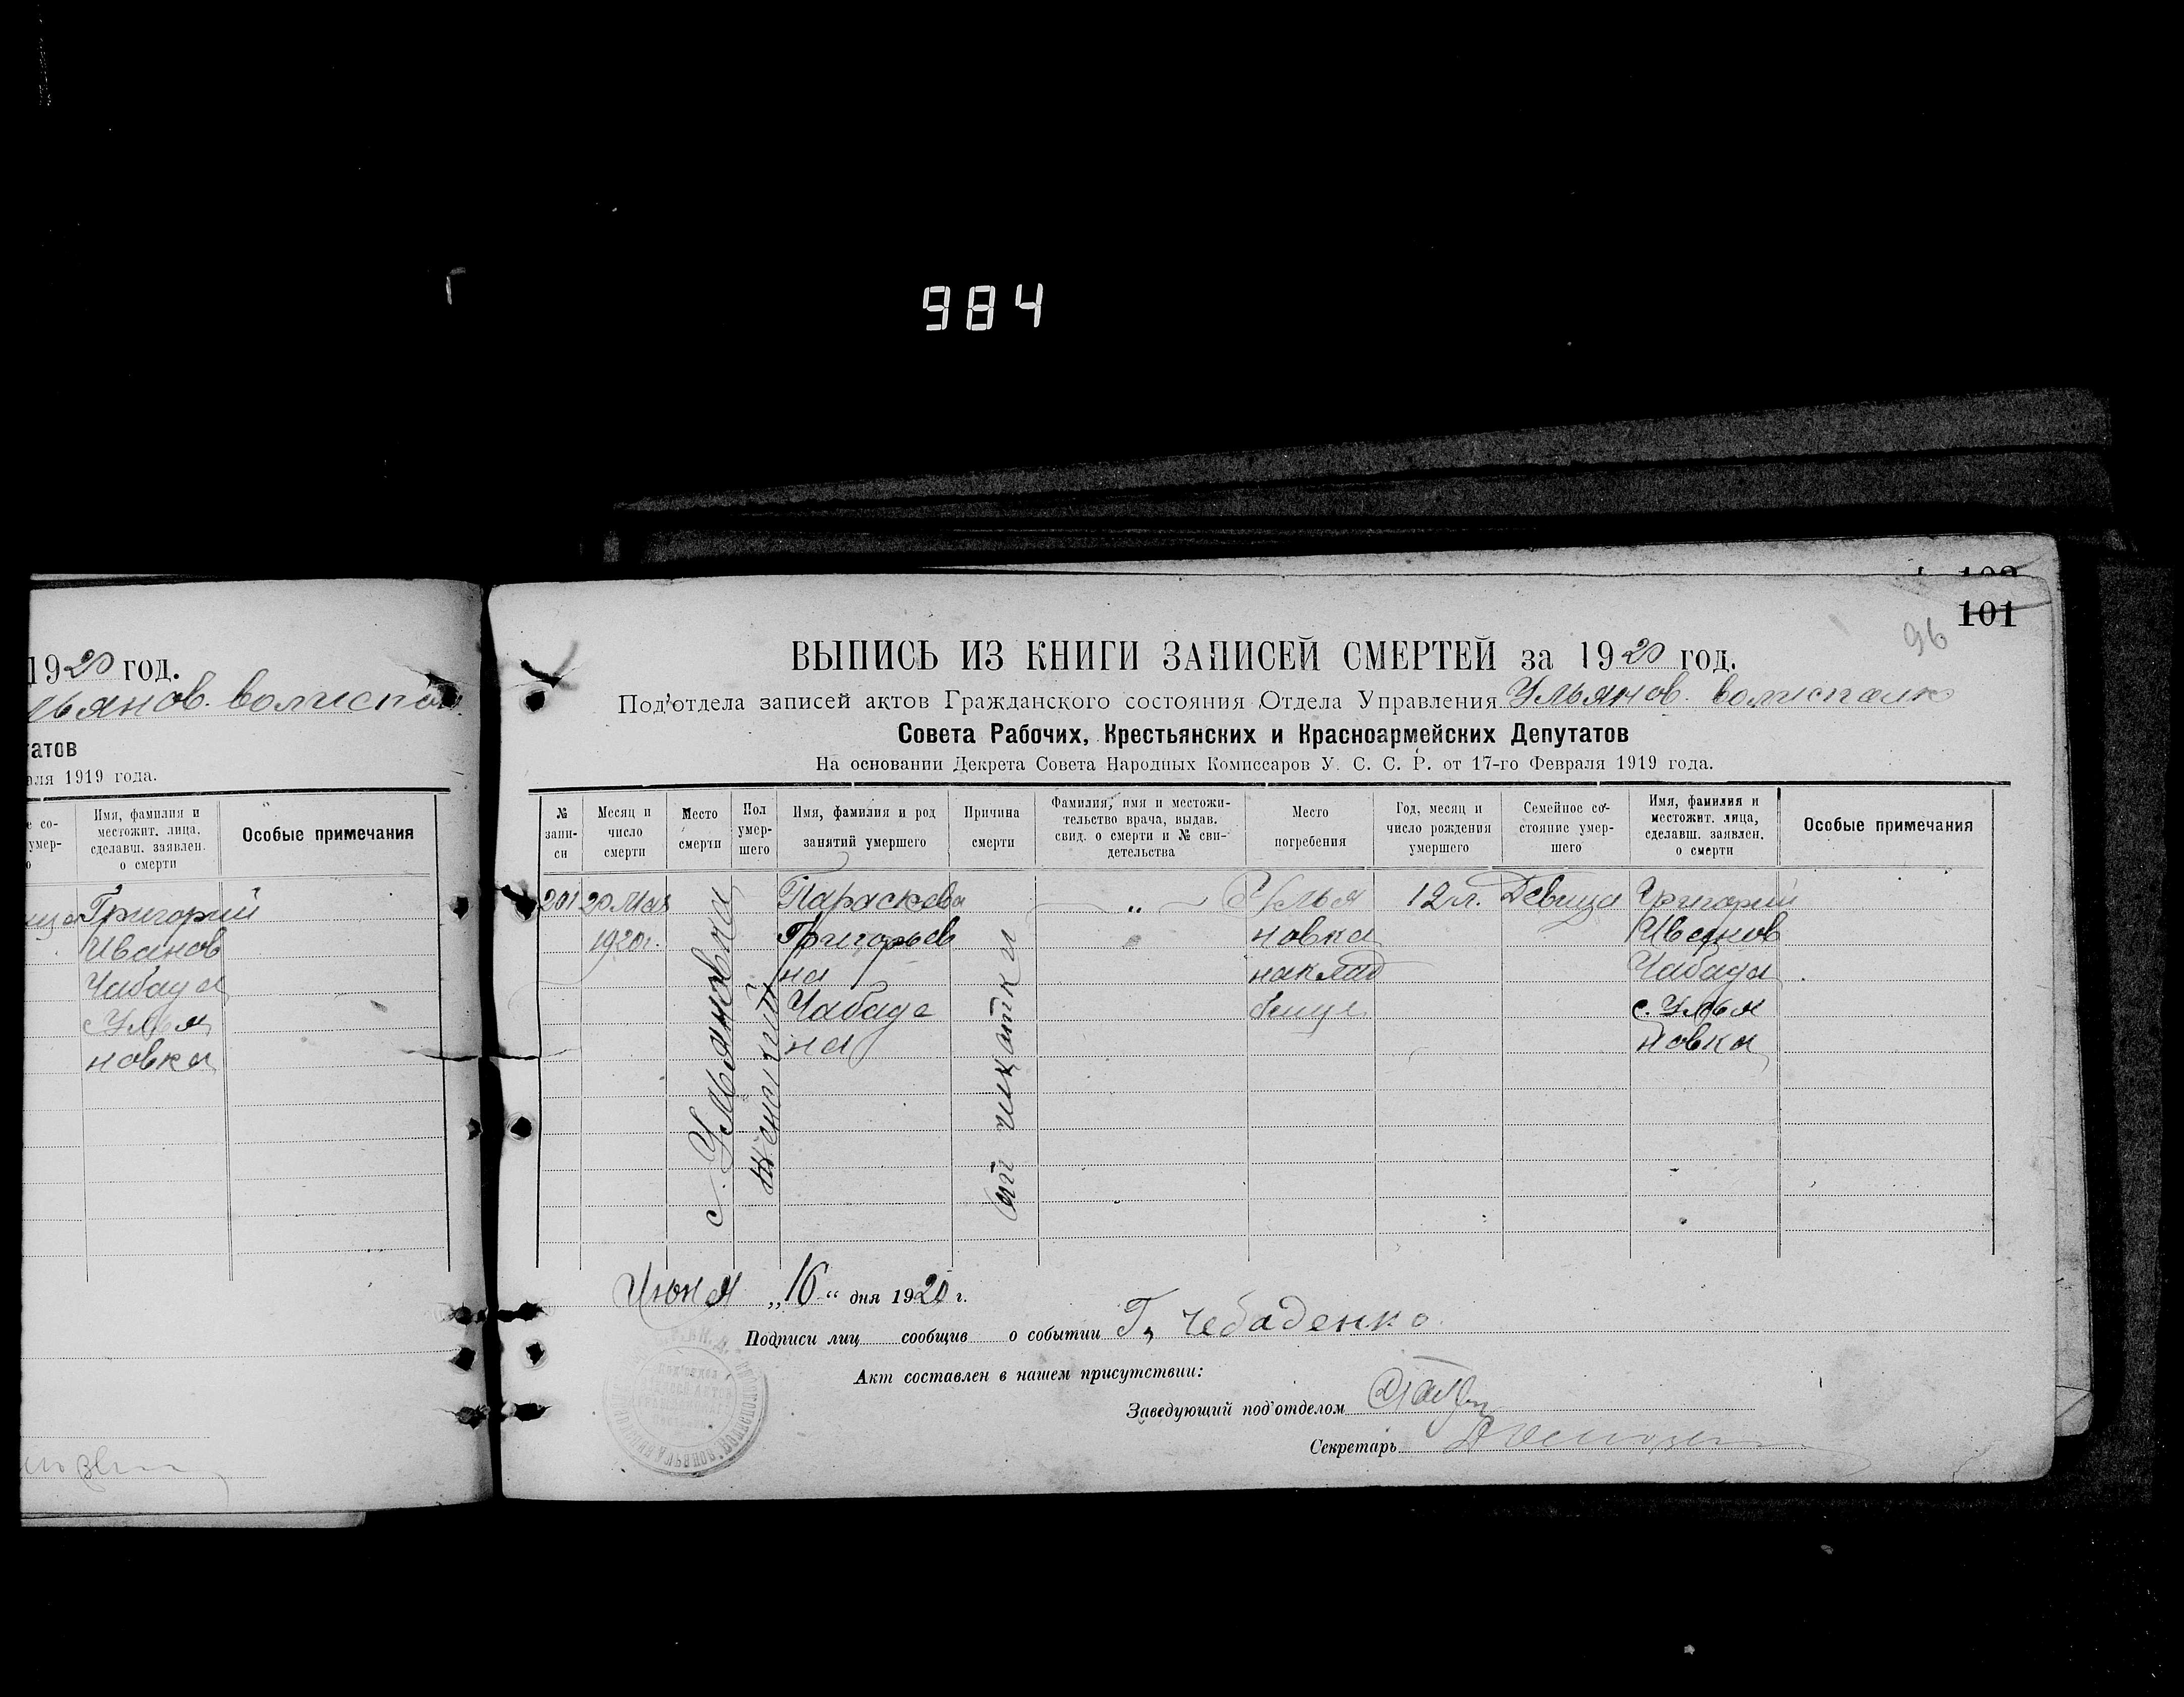 984
1920 год.
льянов. волиспол
татов
аля 1919 года.
е со-
умер-
о
Имя, фамилия и
местожит. лица,
сделавш. заявлен.
о смерти
Особые примечания
ица Григорий
Иванов
Чабада
с Улья
новка
101
96
ВЫПИСЬ ИЗ КНИГИ ЗАПИСЕЙ СМЕРТЕЙ за 1920 год.
Под'отдела записей актов Гражданского состояния Отдела Управления Ульянов. волисполк
Совета Рабочих, Крестьянских и Красноармейских Депутатов
На основании Декрета Совета Народных Комиссаров У. С. С. Р. от 17-го Февраля 1919 года.
№
запи-
си
Месяц и
число
смерти
Место
смерти
Пол
умер-
шего
Имя, фамилия и род
занятий умершего
Причина
смерти
Фамилия, имя и местожи-
тельство врача, выдав.
свид. о смерти и № сви-
детельства
Место
погребения
Год, месяц и
число рождения
умершего
Семейное со-
стояние умер-
шего
Имя, фамилия и
местожит. лица,
сделавш. заявлен.
о смерти
Особые примечания
201
20 Мая
1920г.
с. Ульяновка
Женский
Параскева
Григорьев
на
Чабада
на
от чихатки
„
Улья
новка
наклад
бище
12 л.
Девица
Григорий
Иванов
Чабада
с. Улья
новка
Июня „16“ дня 1920 г.
Подписи лиц сообщив о событии Г. Чебаденко
Акт составлен в нашем присутствии:
Заведующий под'отделом
Секретарь